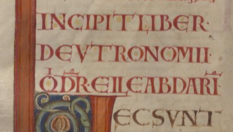 INCIPIT LIBER·
DEVTRONOMII·
Q̅D̅REILEABDARI·
ECSVNT